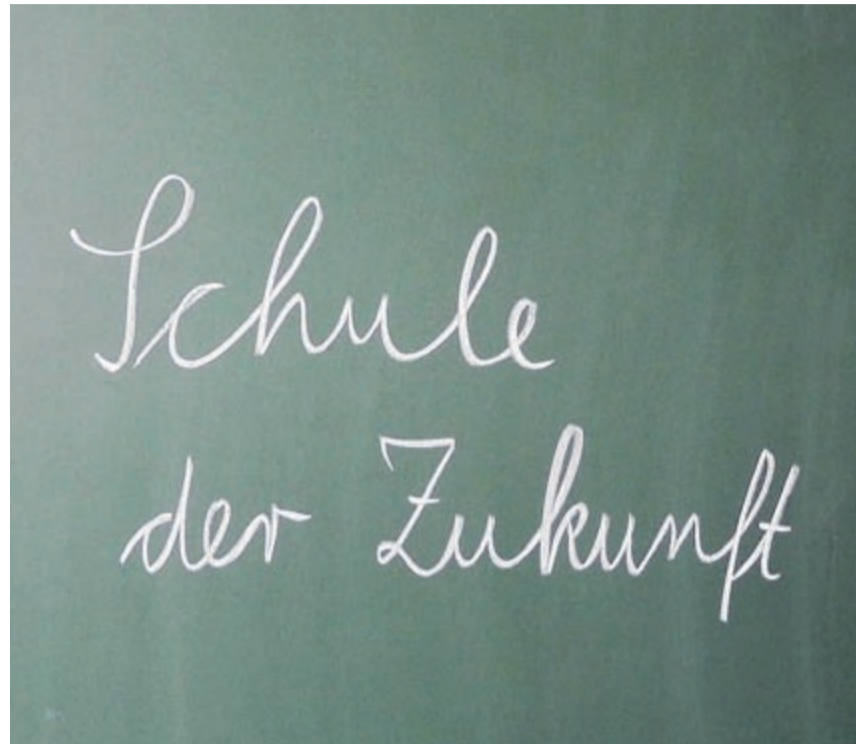 Schule
der Zukunft